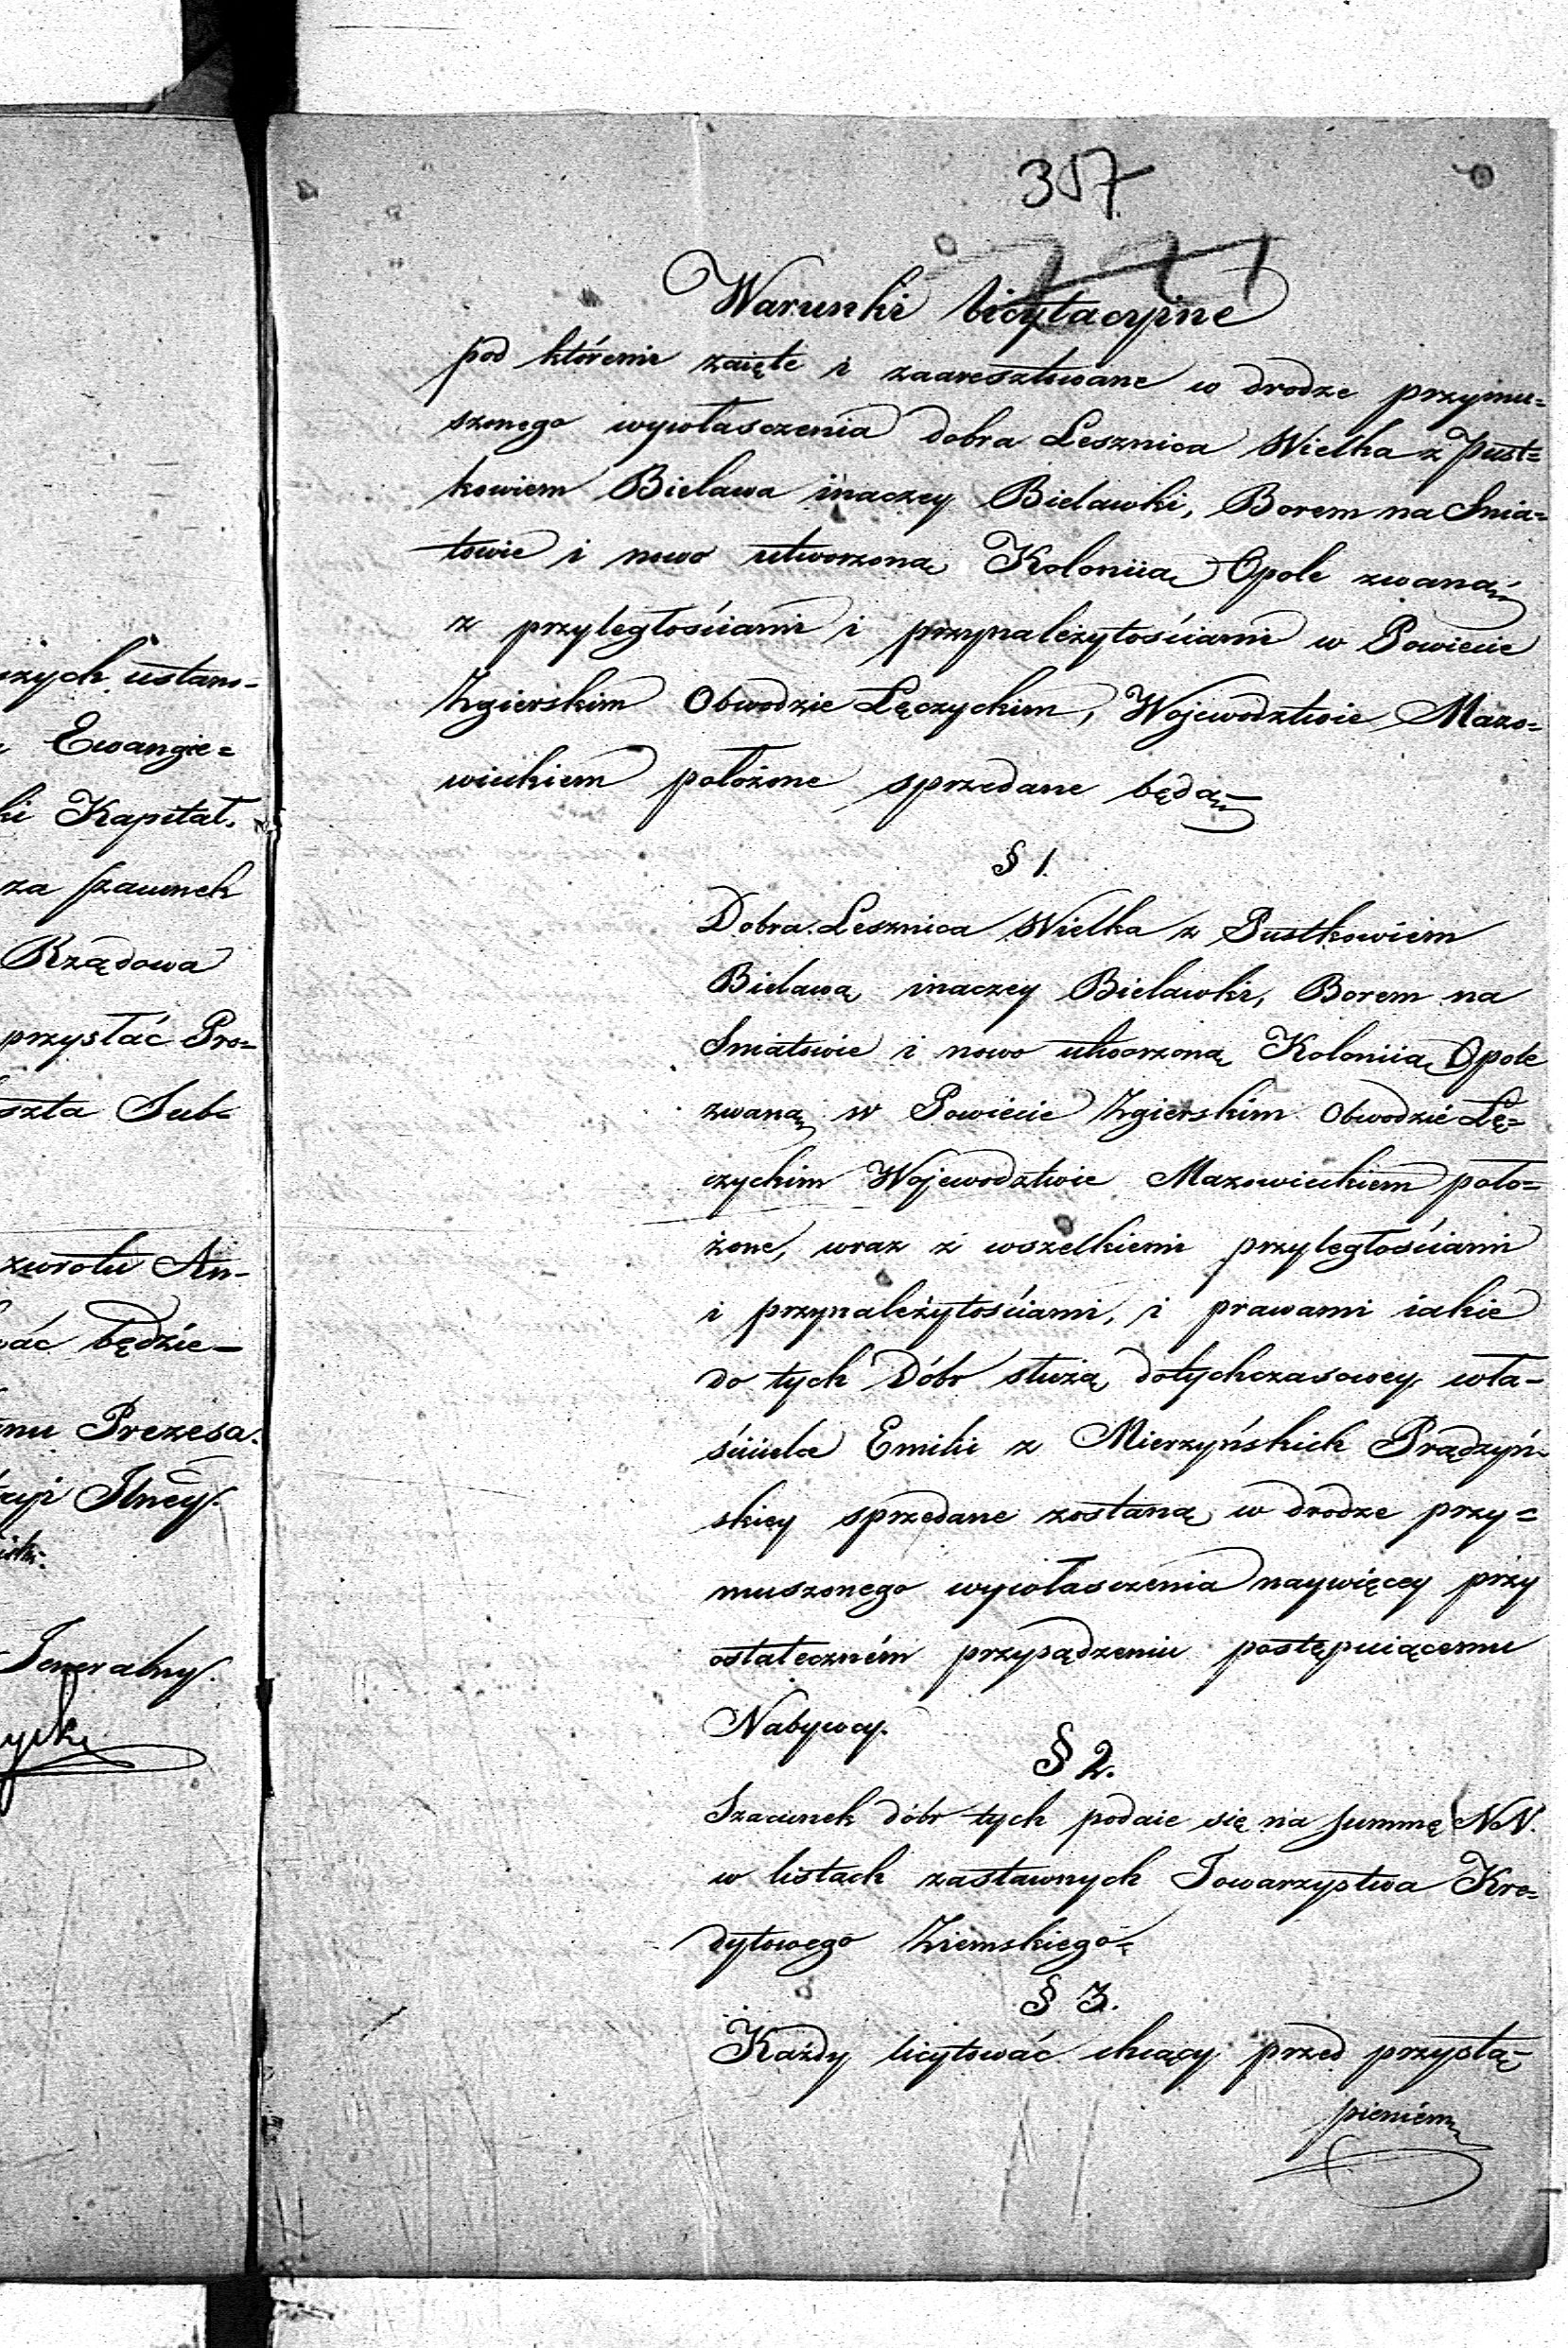 zych ustano-
Ewangie=
ki Kapitał.
za szacunek
Rządowa
przysłać Pro=
szta Sub=
zwrotu An-
wać będzie—
mu Prezesa.
Jlney.
Jeneralny.
357
221
Warunki licytacyine
pod któremi zaięte i zaaresztowane w drodze przymu=
szonego wywłasczenia dobra Lesznica Wielka z Pust=
kowiem Bielawa inaczey Bielawki, Borem na Snia=
towie i nowo utworzoną Koloniią Opole zwaną
z przyległościami i przynależytościami w Powiecie
Zgierskim Obwodzie Łęczyckim, Wojewodztwie Mazo=
wieckiem położone sprzedane będą
§ 1.
Dobra Lesznica Wielka z Pustkowiem
Bielawą inaczey Bielawki, Borem na
Sniatowie i nowo utworzoną Koloniią Opole
zwaną w Powiecie Zgierskim Obwodzie Łę=
czyckim Wojewodztwie Mazowieckiem poło=
żone, wraz z wszelkiemi przyległościami
i przynależytościami, i prawami iakie
do tych Dóbr służą dotychczasowey wła-
ściciela Emilii z Mierzyńskich Prądzyń-
skiey sprzedane zostaną w drodze przy=
muszonego wywłasczenia naywięcey przy
ostateczném przysądzeniu postępuiącemu
Nabywcy.
§ 2.
Szacunek dóbr tych podaie się na summę NN.
w listach zastawnych Towarzystwa Kre=
dytowego Ziemskiego.
§ 3.
Każdy licytować chcący przed przystą-
pieniem